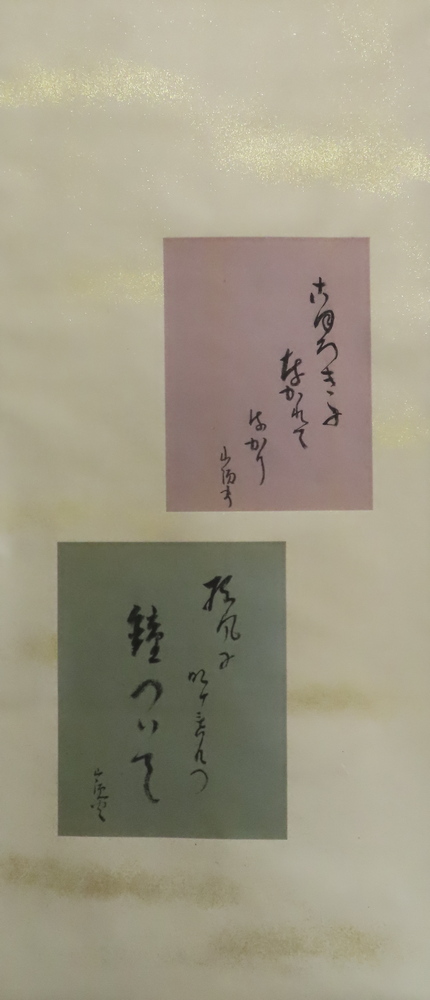 こほろきに
なかれて
はかり
山頭火
松風に
明けくれの
鐘ついて
山頭火